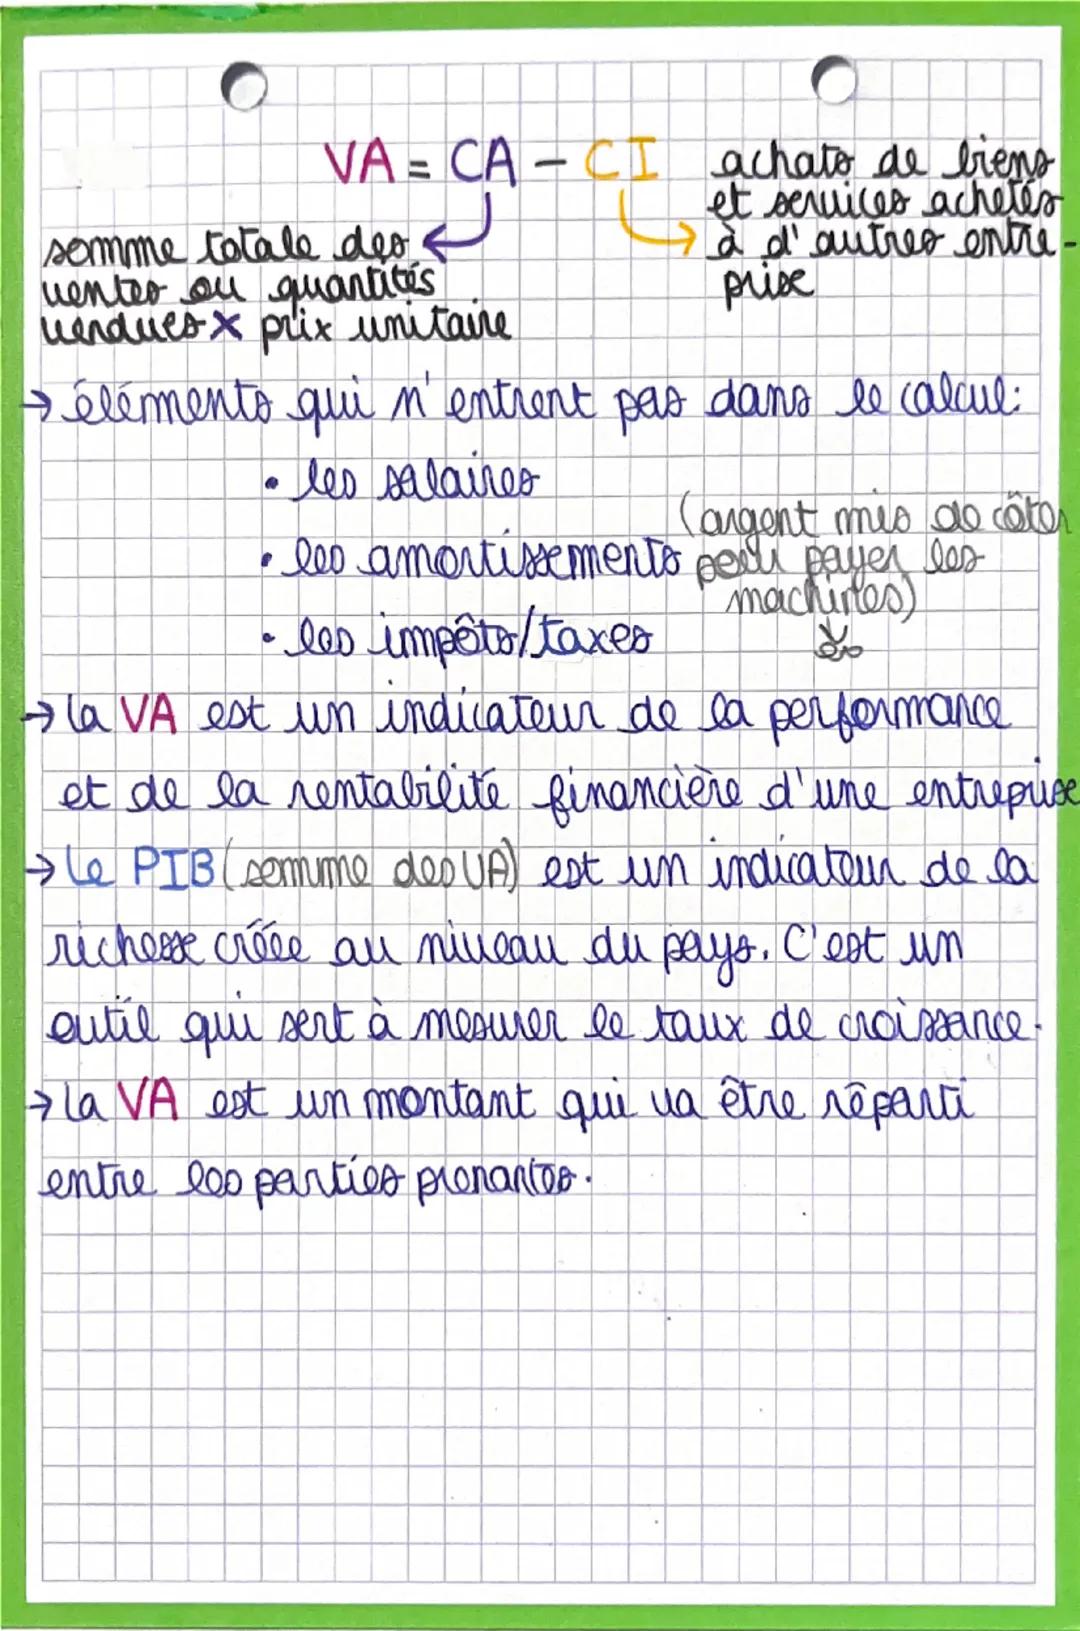 VA = CA - CI
achats de biens
et services achetés
à d'autres entre-
prise
somme totale des
ventes ou quantités
vendues x prix unitaire
→ élémments qui n'entrent pas dans le calcul:
• les salaires
• les amortissements
(argent mis de côter
pour payer les
machines)
• les impôts/taxes
→ la VA est un indicateur de la performance
et de la rentabilité financière d'une entreprise
→ le PIB (somme des VA) est un indicateur de la
richesse créée au niveau du pays. C'est un
outil qui sert à mesurer le taux de croissance.
→ la VA est un montant qui va être réparti
entre les parties prenantes.